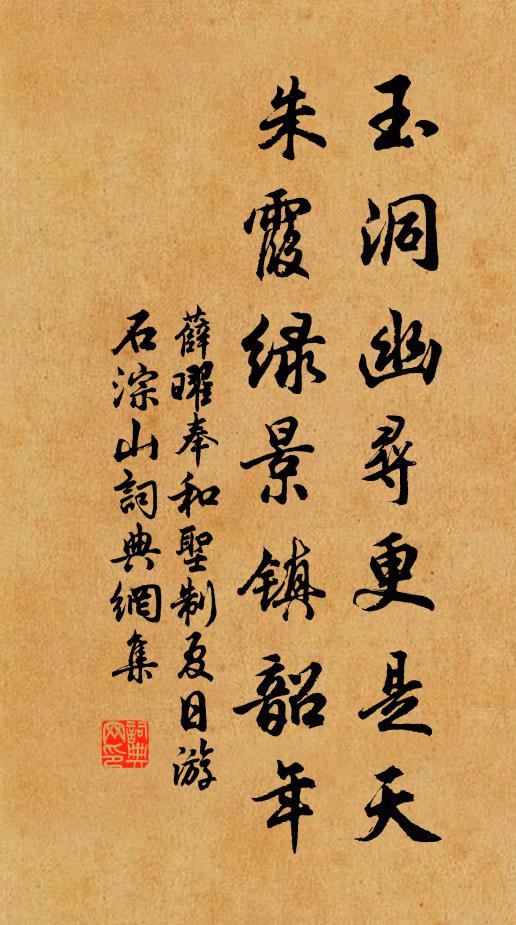 玉洞幽尋更是天
朱霞緑景镇韶年
薛曜奉和聖制夏日游
石淙山詞典網集
詞典網印